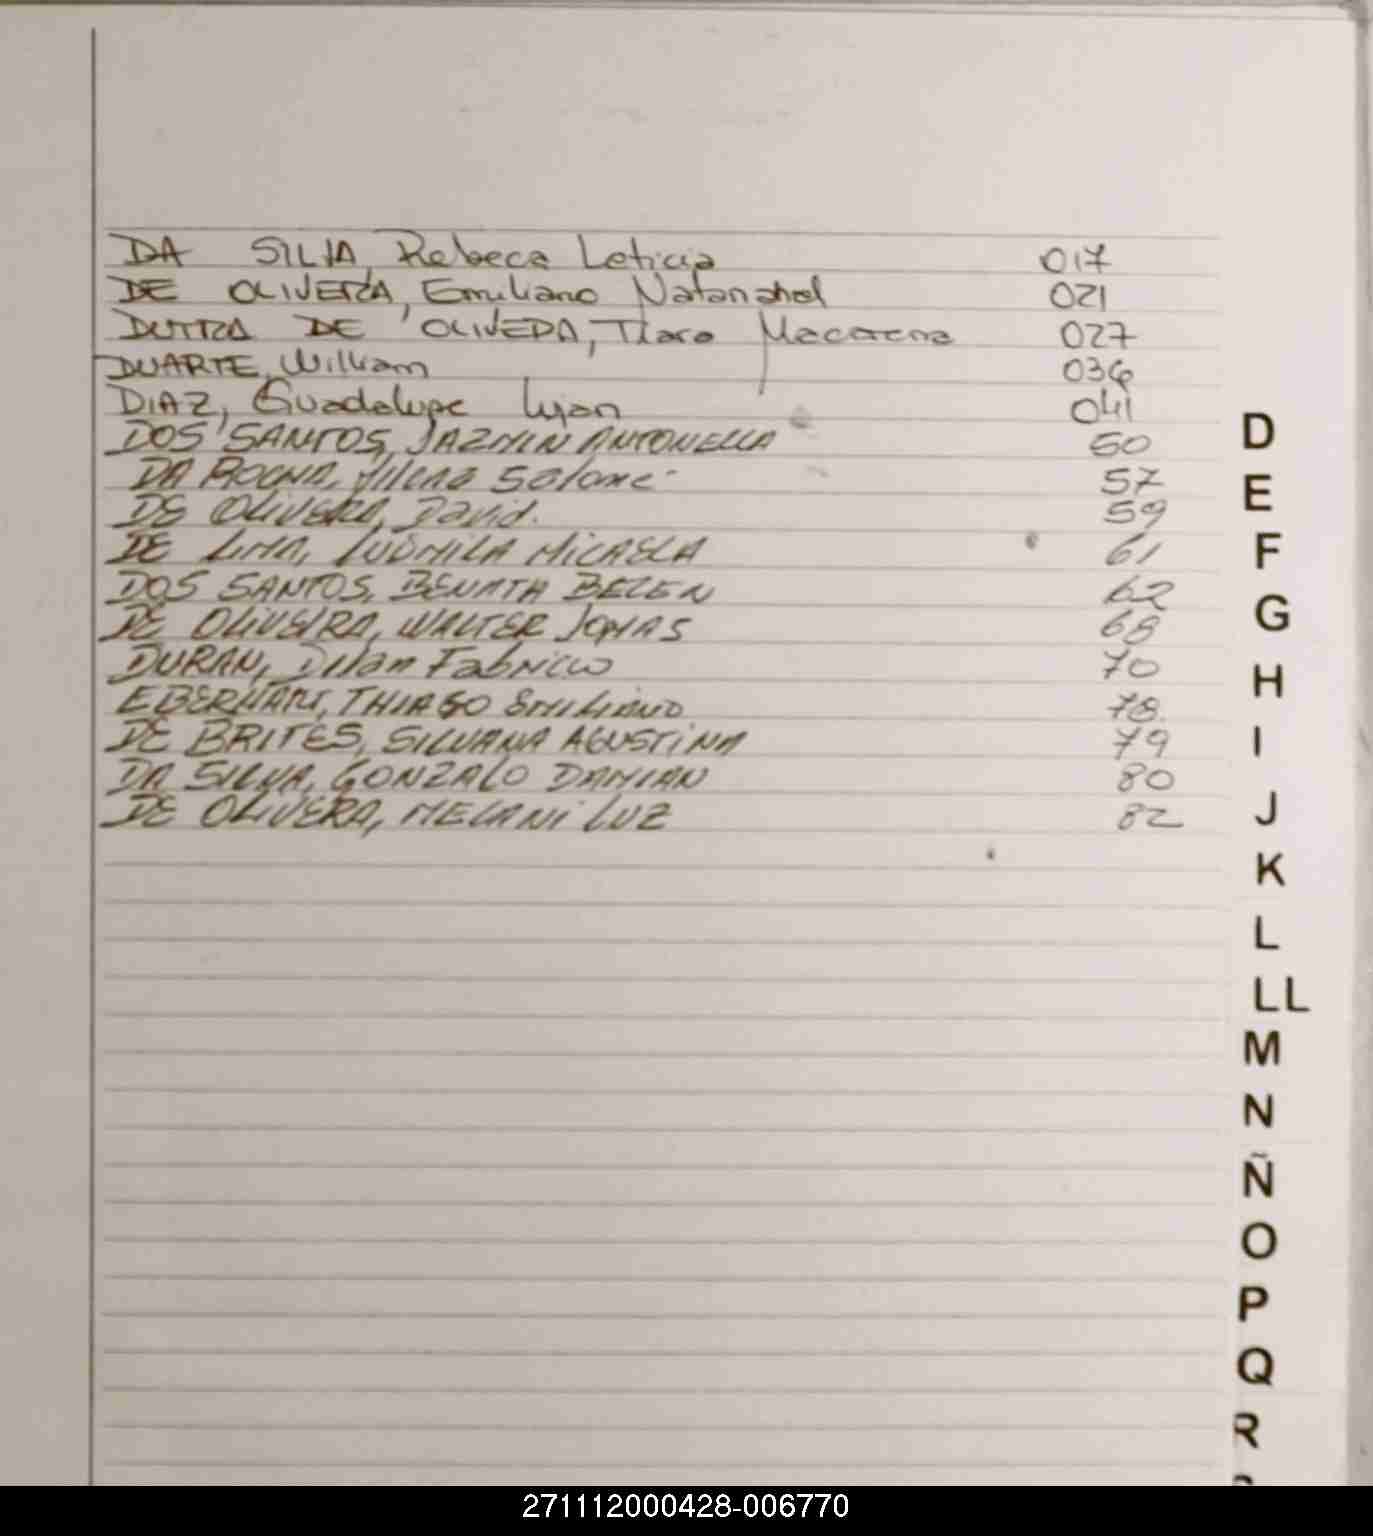 DA SILVA, Rebeca Leticia 017
DE OLIVERA, Emiliano Natanahel 021
DUTRA DE OLIVEDA, Tiara Macarena 027
DUARTE, William 036
DIAZ, Guadalupe 041
DOS SANTOS, JAZMIN ANTONELLA 50
DA ROCHA, Salomé 57
DE OLIVERA, David. 59
DE LIMA, LUDMILA MICAELA 61
DOS SANTOS, BELEN 62
DE OLIVEIRA, WALTER JONAS 68
DURAN, Dilan Fabricio 70
THIAGO EMILIANO 78
DE BRITES, SILVANA AGUSTINA 79
DA SILVA, GONZALO DAMIAN 80
DE OLIVERA, MELANI LUZ 82
D
E
F
G
H
I
J
K
L
LL
M
N
Ñ
O
P
Q
R
271112000428-006770